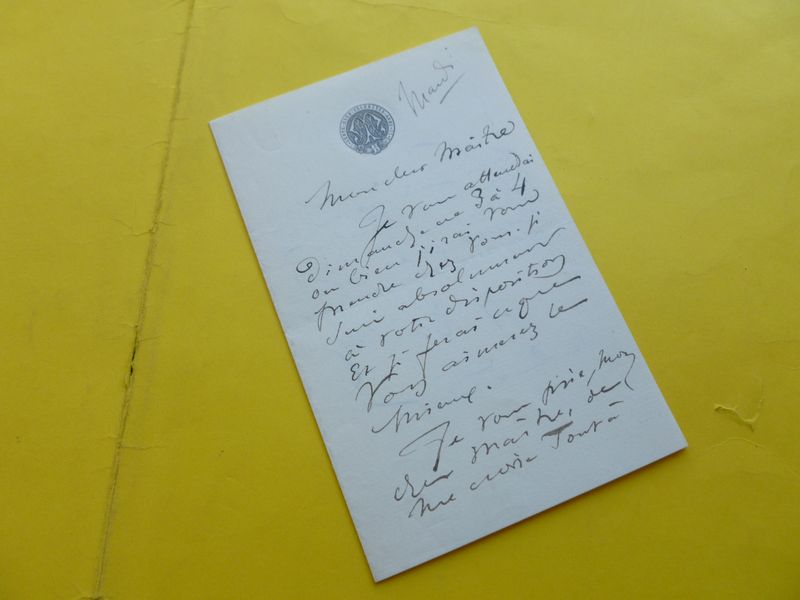 Mardi
Mon cher Maître
Je vous attendrai
Dimanche de 3 à 4
ou bien j'irai vous
prendre chez vous. Je
suis absolument
à votre disposition
Et je ferai ce que
vous aimerez le
mieux.
Je vous prie, Mon
cher Maître, de
me croire Tout à